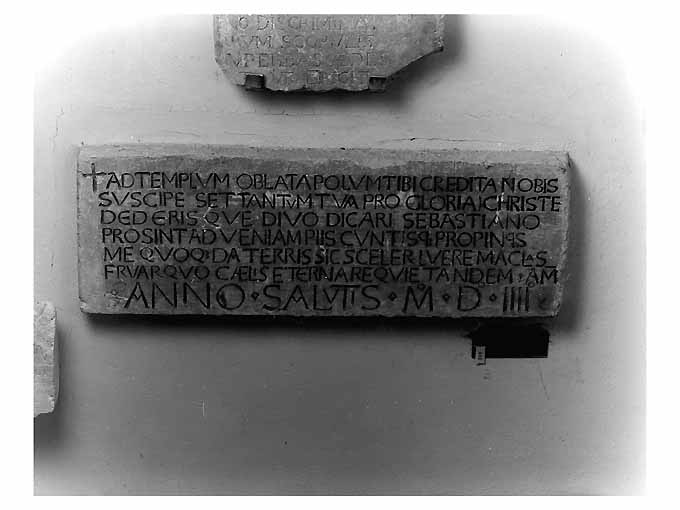 O DISCRIMINA
VM SCOPVLIS
† AD TEMPLVM OBLATA POLVM TIBI CREDITA NOBIS
SVSCIPE SET TANTVM TVA PRO GLORIA CHRISTE
DEDERIS QVE DIVO DICARI SEBASTIANO
PROSINT AD VENIAM PIIS CVNTISQ PROPINQIS
ME QVOQ DA TERRIS SIC SCELER LVERE MACLS
FRVAR QVO CÆLIS ETERNA REQVIE TANDEM · AM
ANNO · SALVTIS · M · D · IIII